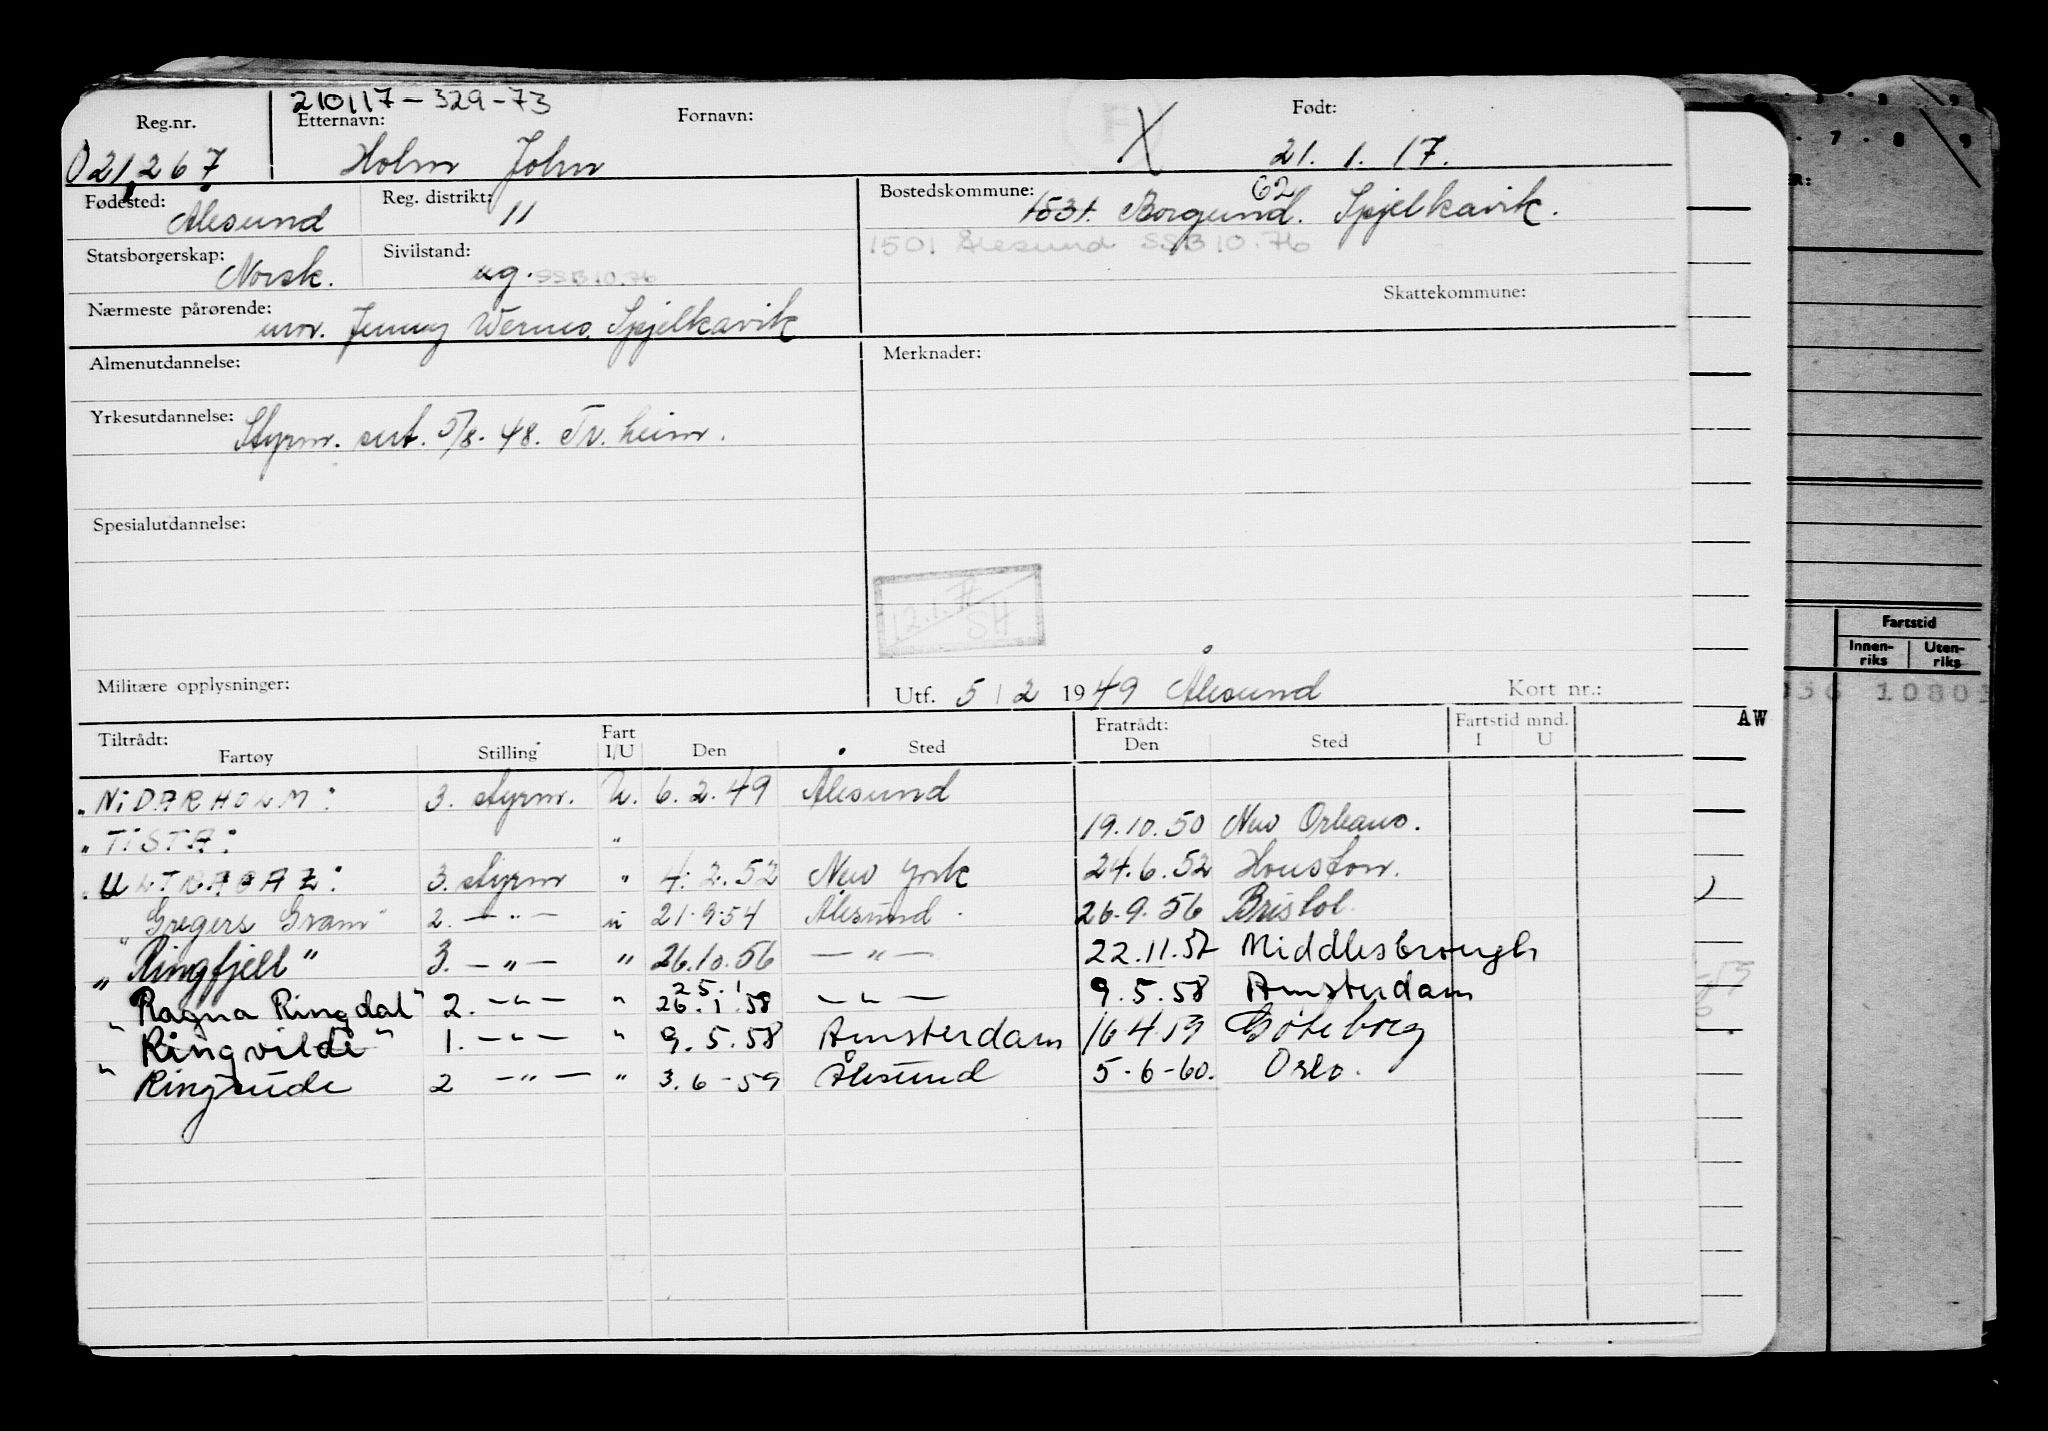 210117-329-73
Reg.nr. Etternavn: Fornavn: Født:
021267 Holm John X 21. 1. 17.
Fødested: Ålesund Reg. distrikt: 11 Bostedskommune: 1531. Borgund. 62 Spjelkavik.
1501 Ålesund SSB 10.76
Statsborgerskap: Norsk. Sivilstand: ug. SSB 10.76
Skattekommune:
Nærmeste pårørende: mor. Jenny Wernes, Spjelkavik
Almenutdannelse: Merknader:
Yrkesutdannelse: Styrm. sert. 5/8-48. Tr.heim.
Spesialutdannelse:
12.1.71
SH
Militære opplysninger: Utf. 5/2 1949 Ålesund Kort nr.:
Tiltrådt: Fratrådt: Fartstid mnd.
Fartøy Stilling Fart I/U Den Sted Den Sted I U
"NIDARHOLM" 3. styrm. U. 6.2.49 Ålesund
"TISTA" " 19.10.50 New Orleans.
"ULTRAGAZ" 3. styrm " 4.2.52 New York 24.6.52 Houston.
"Gregers Gram" 2. -"- u 21.9.54 Ålesund. 26.9.56 Bristol.
"Ringfjell" 3. -"- " 26.10.56 -"- 22.11.57 Middlesbrough
25.1
"Ragna Ringdal" 2. -"- " 26.1.58 -"- 9.5.58 Amsterdam
"Ringvilde" 1. -"- " 9.5.58 Amsterdam 16.4.59 Göteborg
" Ringsude 2 -"- " 3.6-59 Ålesund 5-6-60. Oslo.
AW
7 . 8 . 9
R:
Fartstid
Innenriks Utenriks
10803